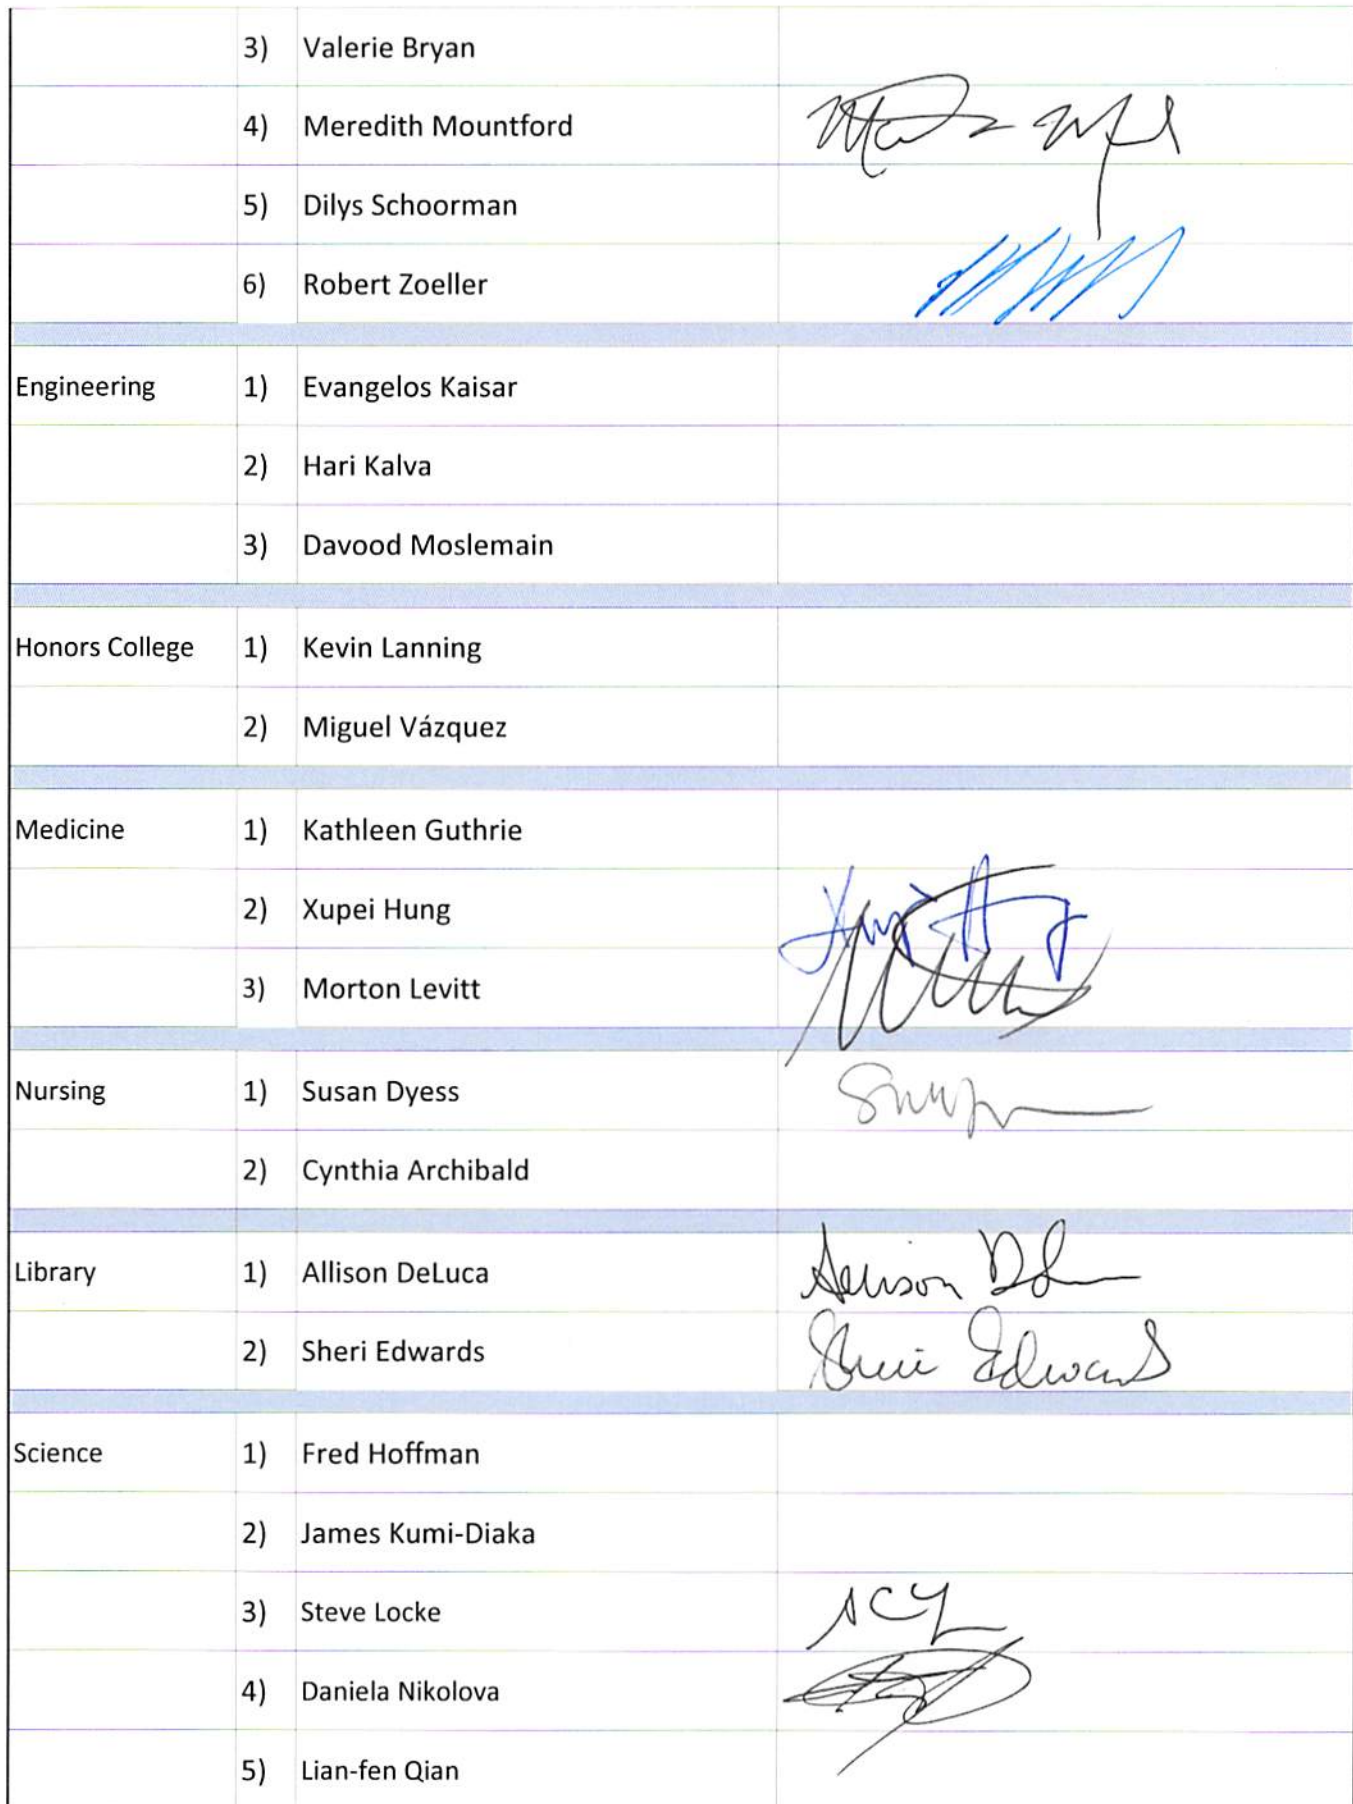 3) Valerie Bryan
4) Meredith Mountford
5) Dilys Schoorman
6) Robert Zoeller
Engineering 1) Evangelos Kaisar
2) Hari Kalva
3) Davood Moslemain
Honors College 1) Kevin Lanning
2) Miguel Vázquez
Medicine 1) Kathleen Guthrie
2) Xupei Hung
3) Morton Levitt
Nursing 1) Susan Dyess
2) Cynthia Archibald
Library 1) Allison DeLuca Allison
2) Sheri Edwards Sheri Edwards
Science 1) Fred Hoffman
2) James Kumi-Diaka
3) Steve Locke
4) Daniela Nikolova
5) Lian-fen Qian